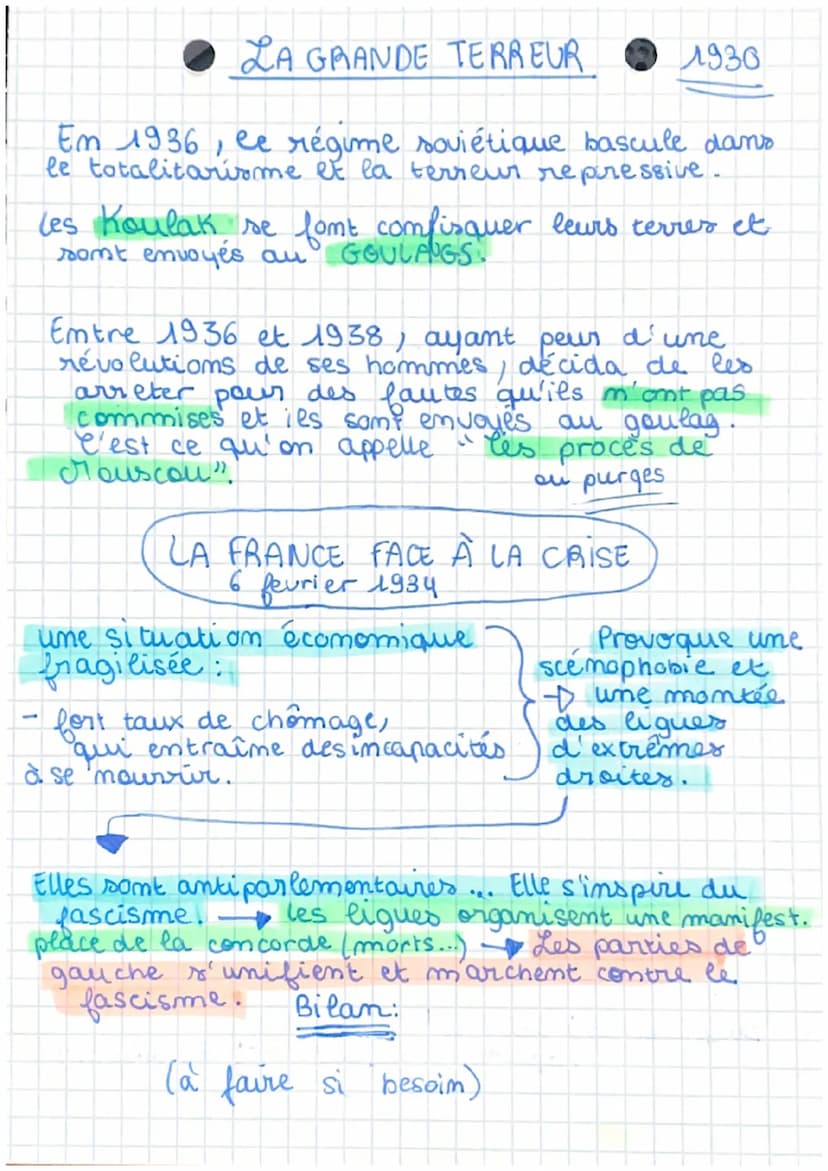 LA GRANDE TERREUR 1930
En 1936, le régime soviétique bascule dans
le totalitarisme et la terreur repressive.
Les Koulak se font confisquer leurs terres et
sont envoyés au GOULAGS.
Entre 1936 et 1938, ayant peur d'une
révolutions de ses hommes, décida de les
arreter pour des fautes qu'ils n'ont pas
commmises et ils sont envoyés au goulag.
C'est ce qu'on appelle "les procès de
Mouscou".
ou purges
LA FRANCE FACE À LA CRISE
6 fevrier 1934
une situation économique
fragilisée :
- fort taux de chômage,
qui entraîne des incapacités
à se nourrir.
Provoque une
scénophobie et
→ une montée
des ligues
d'extrêmes
droites.
Elles sont antiparlementaires ... Elle s'inspire du
fascisme. → les ligues organisent une manifest.
place de la concorde (morts...) → Les parties de
gauche s'unifient et marchent contre le
fascisme.
Bilan:
(à faire si besoin)